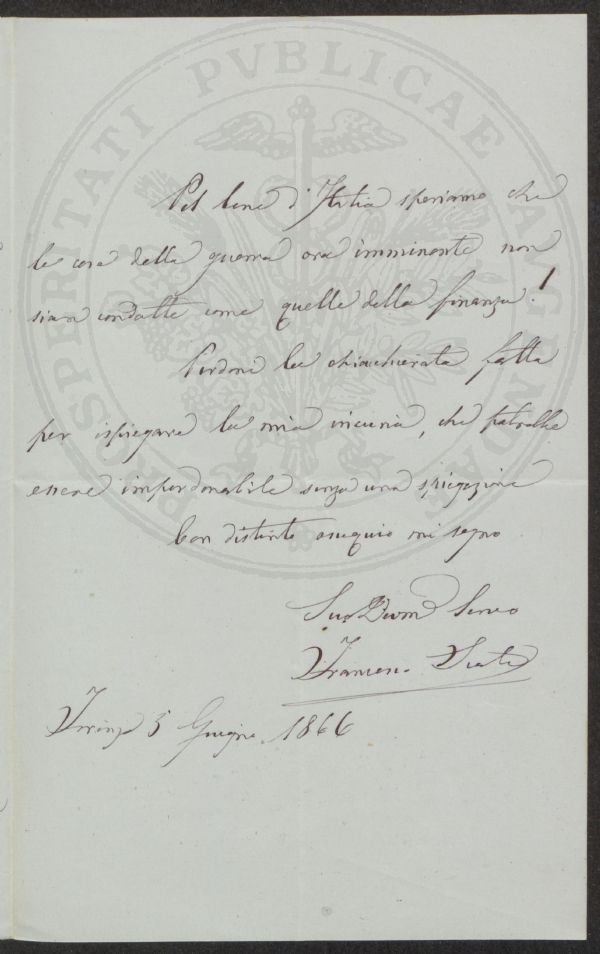 PROSPERITATI PVBLICAE AVGENDAE
Pel bene d'Italia speriamo che
le cose della guerra ora imminente non
sian condotte come quelle della finanza!
Perdoni la chiacchierata fatta
per ispiegare la mia incuria, che potrebbe
essere imperdonabile senza una spiegazione
Con distinto ossequio mi segno
Suo Devm̃o Servo
Francesco
5 Giugno 1866